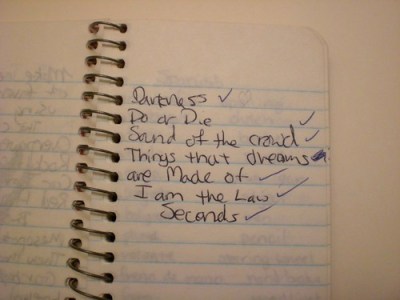 Darkness ✓
Do or Die ✓
Sound of the crowd ✓
Things that dreams ✓
are Made of ✓
I am the Law ✓
Seconds ✓